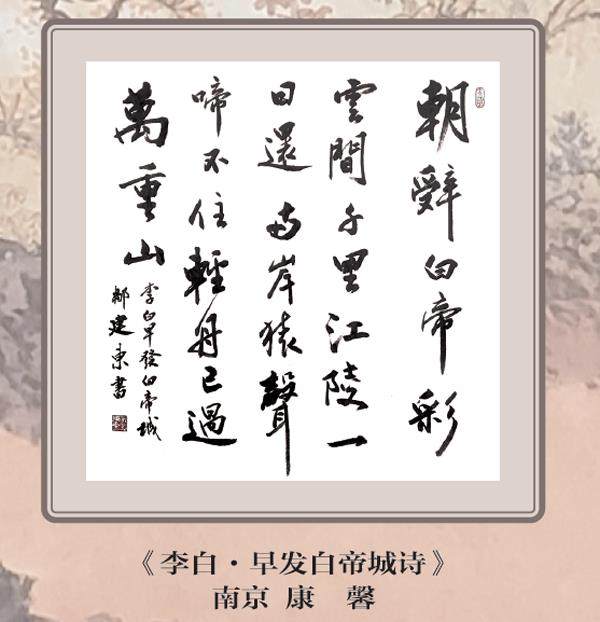 朝辭白帝彩
雲間千里江陵一
日還兩岸猿聲
啼不住輕舟已過
萬重山
李白早發白帝城
鄒建東書
《李白·早发白帝城诗》
南京 康 馨